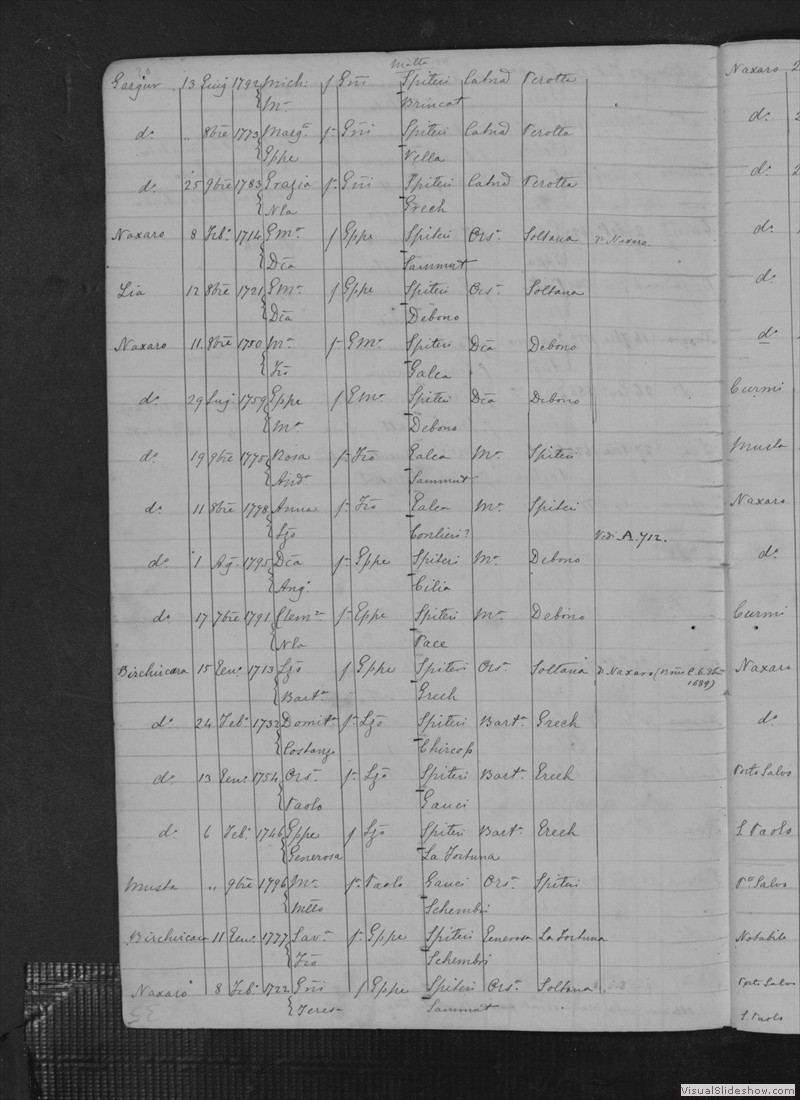 Malta
Gargur 13 Giug 1792 Mich: f Gñi Spiteri Catnd Perotta
Mª Brincat
dº " 8bre 1773 Margª f Gñi Spiteri Catnd Perotta
Gppe Vella
dº 25 9bre 1783 Grazia f Gñi Spiteri Catnd Perotta
Nla Grech
Naxaro 8 Febº 1714 GMª f Gppe Spiteri Orsª Soltana d Naxaro
Dca Sammut
Lia 12 8bre 1721 GMª f Gppe Spiteri Orsª Soltana
Dca Debono
Naxaro 11 8bre 1750 Mª f GMª Spiteri Dca Debono
Fco Galea
dº 29 Lug 1759 Gppe f GMª Spiteri Dca Debono
Mª Debono
dº 19 9bre 1775 Rosa f Fco Galea Mª Spiteri
Andª Sammut
dº 11 8bre 1778 Anna f Fco Galea Mª Spiteri
Lzo
Vedi A. 712.
dº 1 Agº 1795 Dca f Gppe Spiteri Mª Debono
Angº Cilia
dº 17 7bre 1791 Clemª f Gppe Spiteri Mª Debono
Nla Pace
Birchircara 15 Genº 1713 Lzo f Gppe Spiteri Orsª Soltana d Naxaro
1689)
Bartª Grech
dº 24 Febº 1732 Domitª f Lzo Spiteri Bartª Grech
Costanzo Chircop
dº 13 Genº 1754 Orsª f Lzo Spiteri Bartª Grech
Paolo Gauci
dº 6 Febº 1746 Gppe f Lzo Spiteri Bartª Grech
Generosa La Fortuna
Musta " 9bre 1796 Mª f Paolo Gauci Orsª Spiteri
Mtteo Schembri
Birchircara 11 Genº 1777 Savª f Gppe Spiteri Generosa La Fortuna
Fco Schembri
Naxaro 8 Febº 1722 Gñi f Gppe Spiteri Orsª Soltana
Teresa Sammut
Naxaro 2
dº 2
dº 2
dº
dº
dº
Curmi
Musta
Naxaro
dº
Curmi
Naxaro
dº
Porto Salvo
S. Paolo
Pº Salvo
Notabile
Porto Salvo
S. Paolo
VisualSlideshow.com